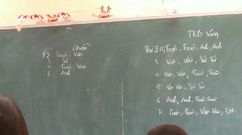 Chiều
TKB Sáng
2) Toán, Văn
Thứ 2: Toán, Toán, Anh, Anh
3 Sử
3 Văn, Văn, Sử Sử
4 Toán, Văn
4 Văn, Văn, Toán, Toán
6 Anh
5 Văn Văn, Sử Sử
6 Anh, Anh, Toán Toán
7 Toán, Toán, Văn, Văn, SH